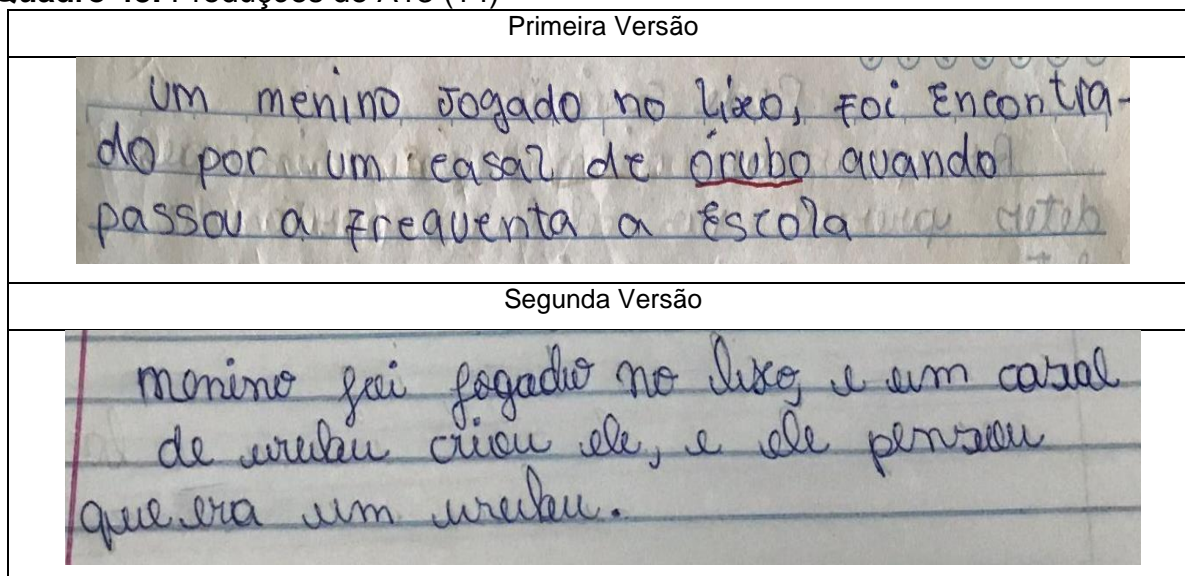 Primeira Versão
um menino Jogado no lixo, Foi Encontra-
do por um casal de órubo quando
passou a Frequenta a Escola
Segunda Versão
menino foi jogado no lixo, e um casal
de urubu criou ele, e ele pensou
que era um urubu.